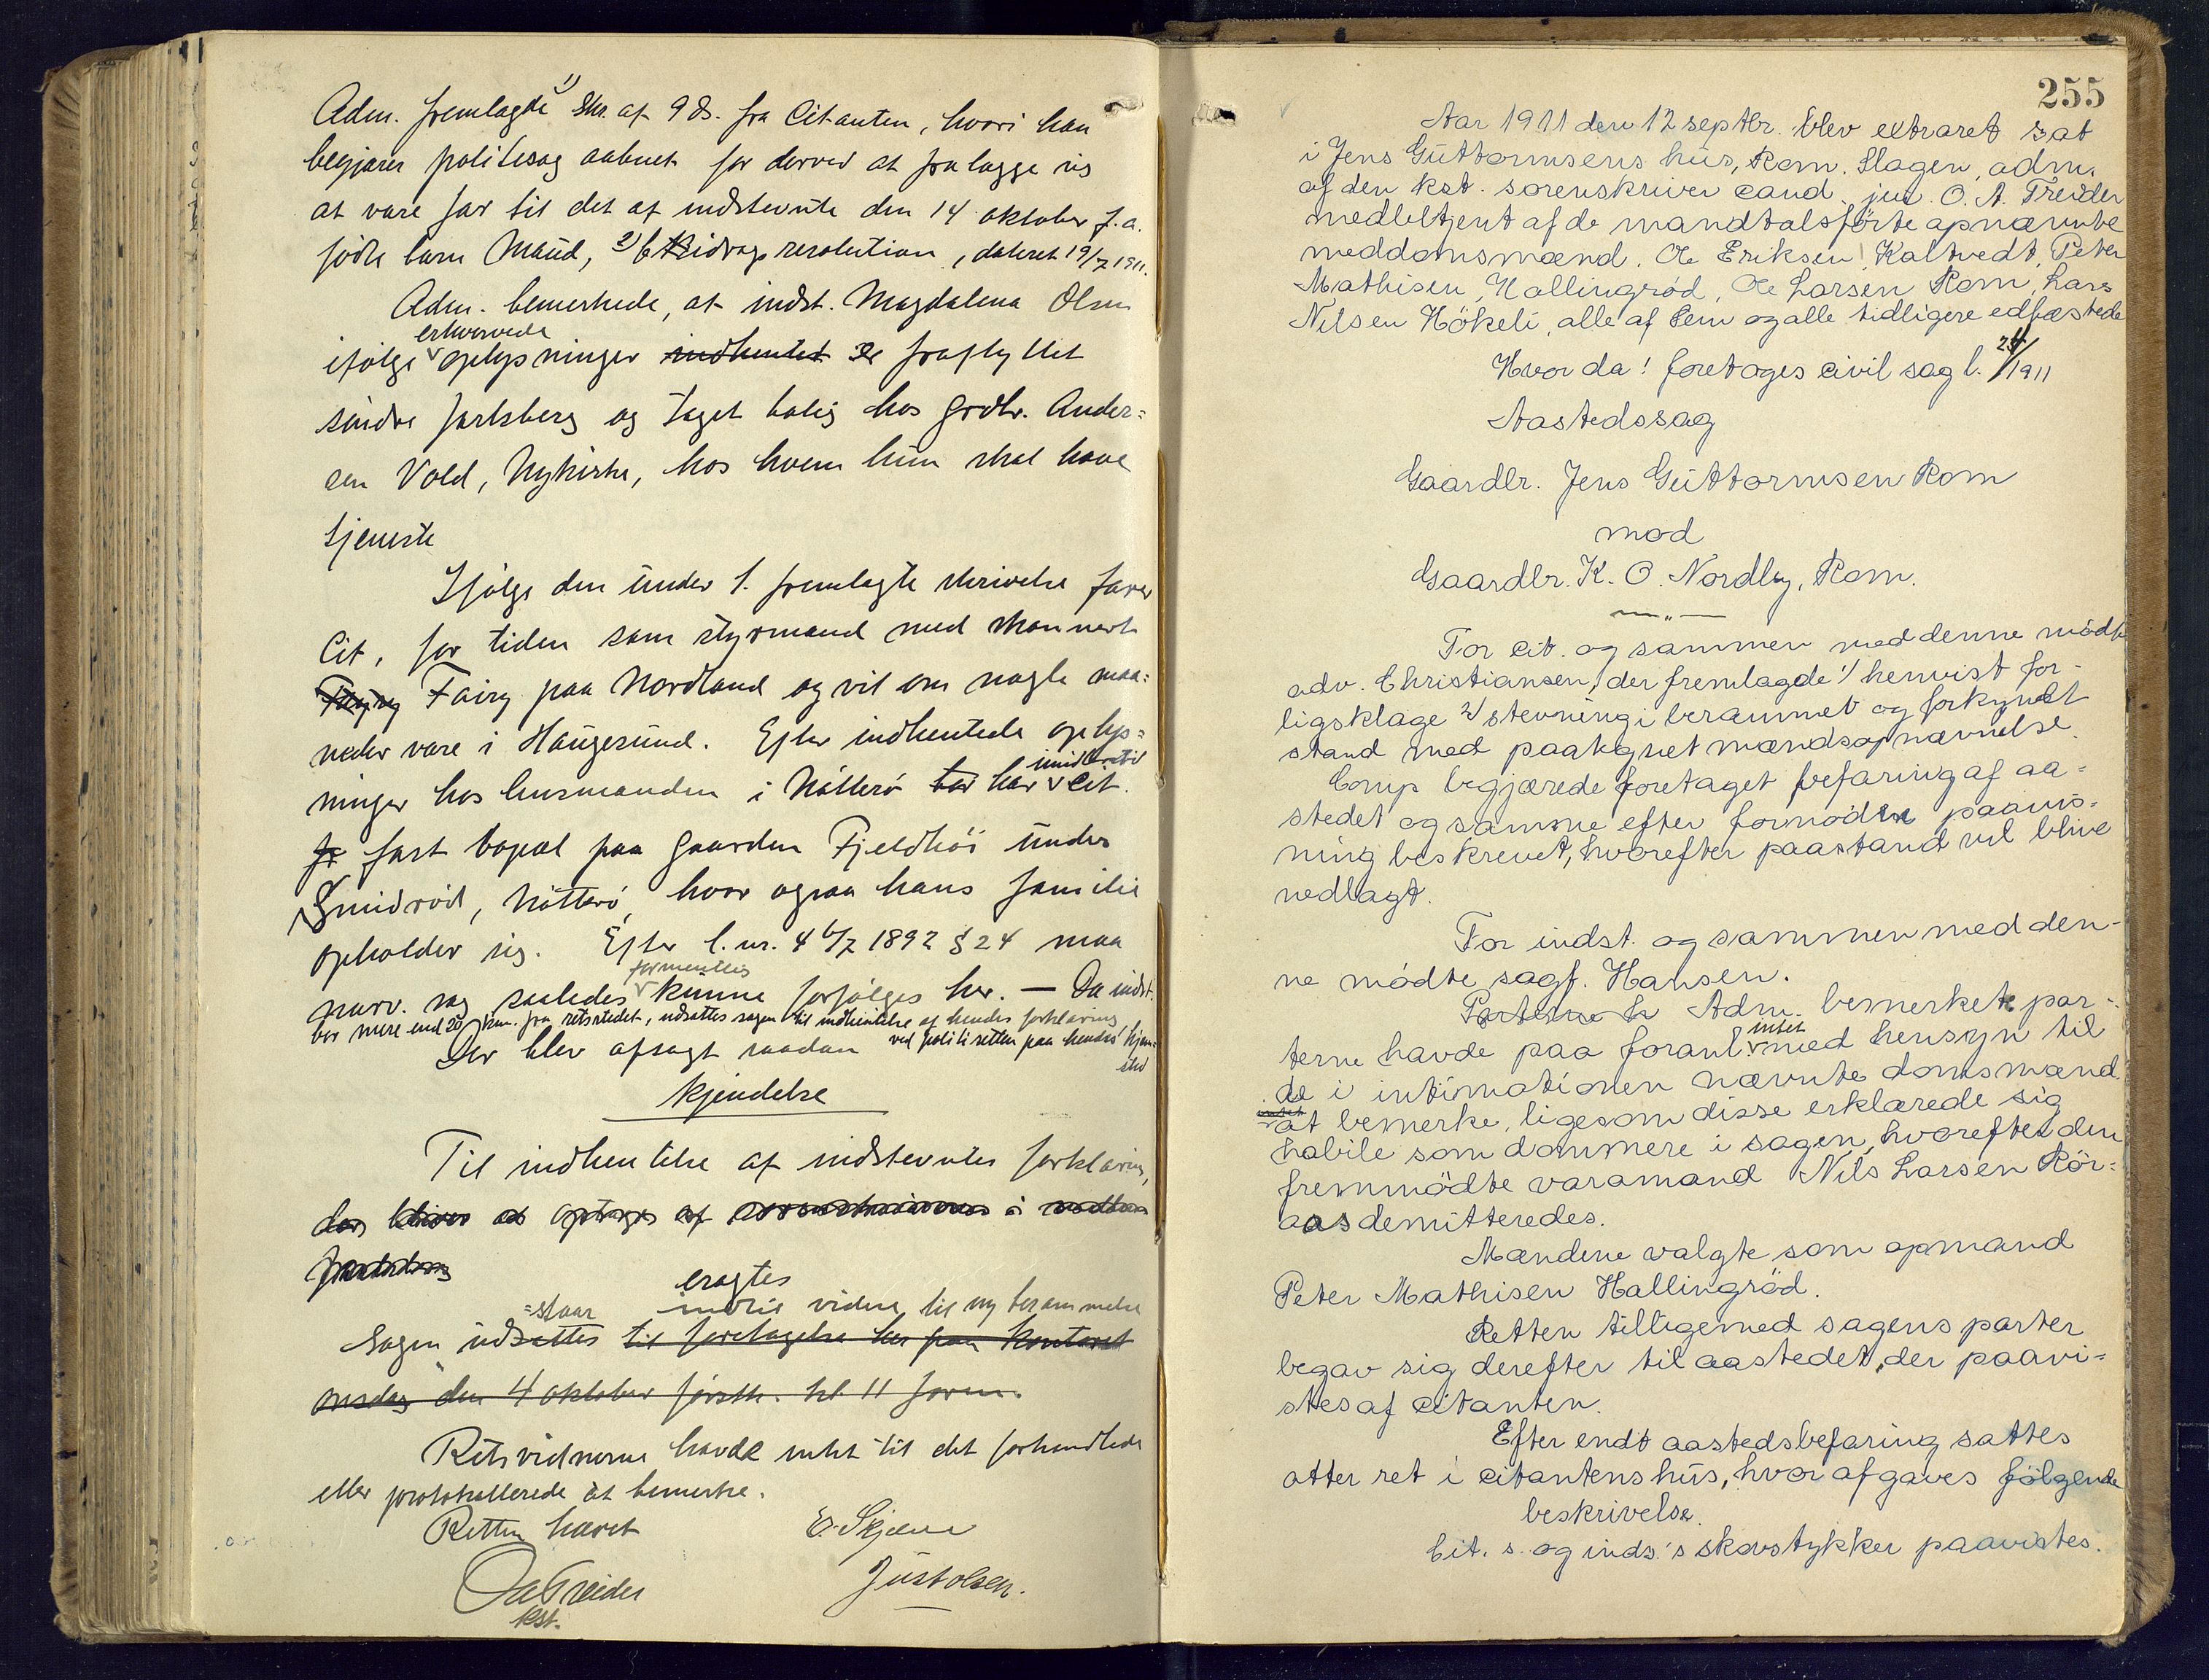 Adm. fremlagde 1) Skr. af 9 ds. fra Citanten, hvori han
begjærer politisag aabnet for derved at fralægge sig
at være far til det af indstevnte den 14 oktober f. a.
födte barn Maud, 2) bidragsresolution, dateret 19/7 1911.
Adm. bemerkede, at indst. Magdalena Olsen
erhvervede
ifölge oplysninger indhentet er fraflyttet
söndre Jarlsberg og taget bolig hos Grdbr. Ander=
sen Vold, Nykirke, hos hvem hun skal have
tjeneste
Ifölge den under 1. fremlagte skrivelse farer
Cit, for tiden som styrmand med skonnert
Fairy paa Nordland og vil om nogle maa=
neder være i Haugesund. Efter indhentede oplys=
imidlertid
ninger hos lensmanden i Nötterö har cit.
fast bopæl paa gaarden Fjeldhöi under
Smidröd, Nötterö, hvor ogsaa hans familie
opholder sig. Efter l. nr. 4 6/7 1892 § 24 maa
formentlig
nærv. sag saaledes kunne forfölges her. — Da indst.
bor mere end 20 km. fra retsstedet, udsattes sagen til indhentelse af hendes forklaring
ved politiretten paa hendes hjem-
sted
Der blev afsagt saadan
Kjendelse
Til indhentelse af indstevntes forklaring,
der bliver at optages af sorenskriveren i
eragtes
=staar indtil videre, til ny berammelse
Sagen udsættes til foretagelse her paa kontoret
onsdag den 4 oktober förstk. kl 11 form.
Retsvidnerne havde intet til det forhandlede
eller protokollerede at bemerke.
Retten hævet
E. Skjæve
OATreider
Just Olsen.
kst.
255
Aar 1911 den 12 septbr. blev extraret sat
i Jens Guttormsens hus, Rom. Slagen, adm.
af den kst. sorenskriver cand. jur. O. A. Treider
medbetjent af de mandtalsförte opnævnte
meddomsmænd. Ole Eriksen Kaltvedt, Peter
Mathisen, Hallingröd, Ole Larsen Rom, Lars
Nilsen Hökeli, alle af Sem og alle tidligere edfæstede
Hvor da! foretoges civil sag l. 25/1911
Aastedssag
Gaardbr. Jens Guttormsen Rom
mod
Gaardbr. K. O. Nordby, Rom.
For cit. og sammen med denne mödte
adv. Christiansen, der fremlagde 1) henvist for-
ligsklage 2) stevning i berammet og forkyndt
stand med paategnet mændsopnævnelse.
Comp begjærede foretaget befaring af aa=
stedet og samme efter fornöden paavis=
ning beskrevet, hvorefter paastand vil blive
nedlagt.
For indst. og sammen med den-
ne mödte sagf. Hansen.
Parterne h Adm. bemerkete par-
intet
terne havde paa foranl. med hensyn til
de i intimationen nævnte domsmænd
intet
at bemerke, ligesom disse erklærede sig
habile som dommere i sagen, hvorefter den
fremmödte varamand Nils Larsen Rör=
aas demitteredes.
Mændene valgte som opmand
Peter Mathisen Hallingröd.
Retten tilligemed sagens parter
begav sig derefter til aastedet, der paavi=
stes af citanten.
Efter endt aastedsbefaring sattes
atter ret i citantens hus, hvor afgaves fölgende
beskrivelse.
Cit. s. og inds.'s skovstykker paavistes.